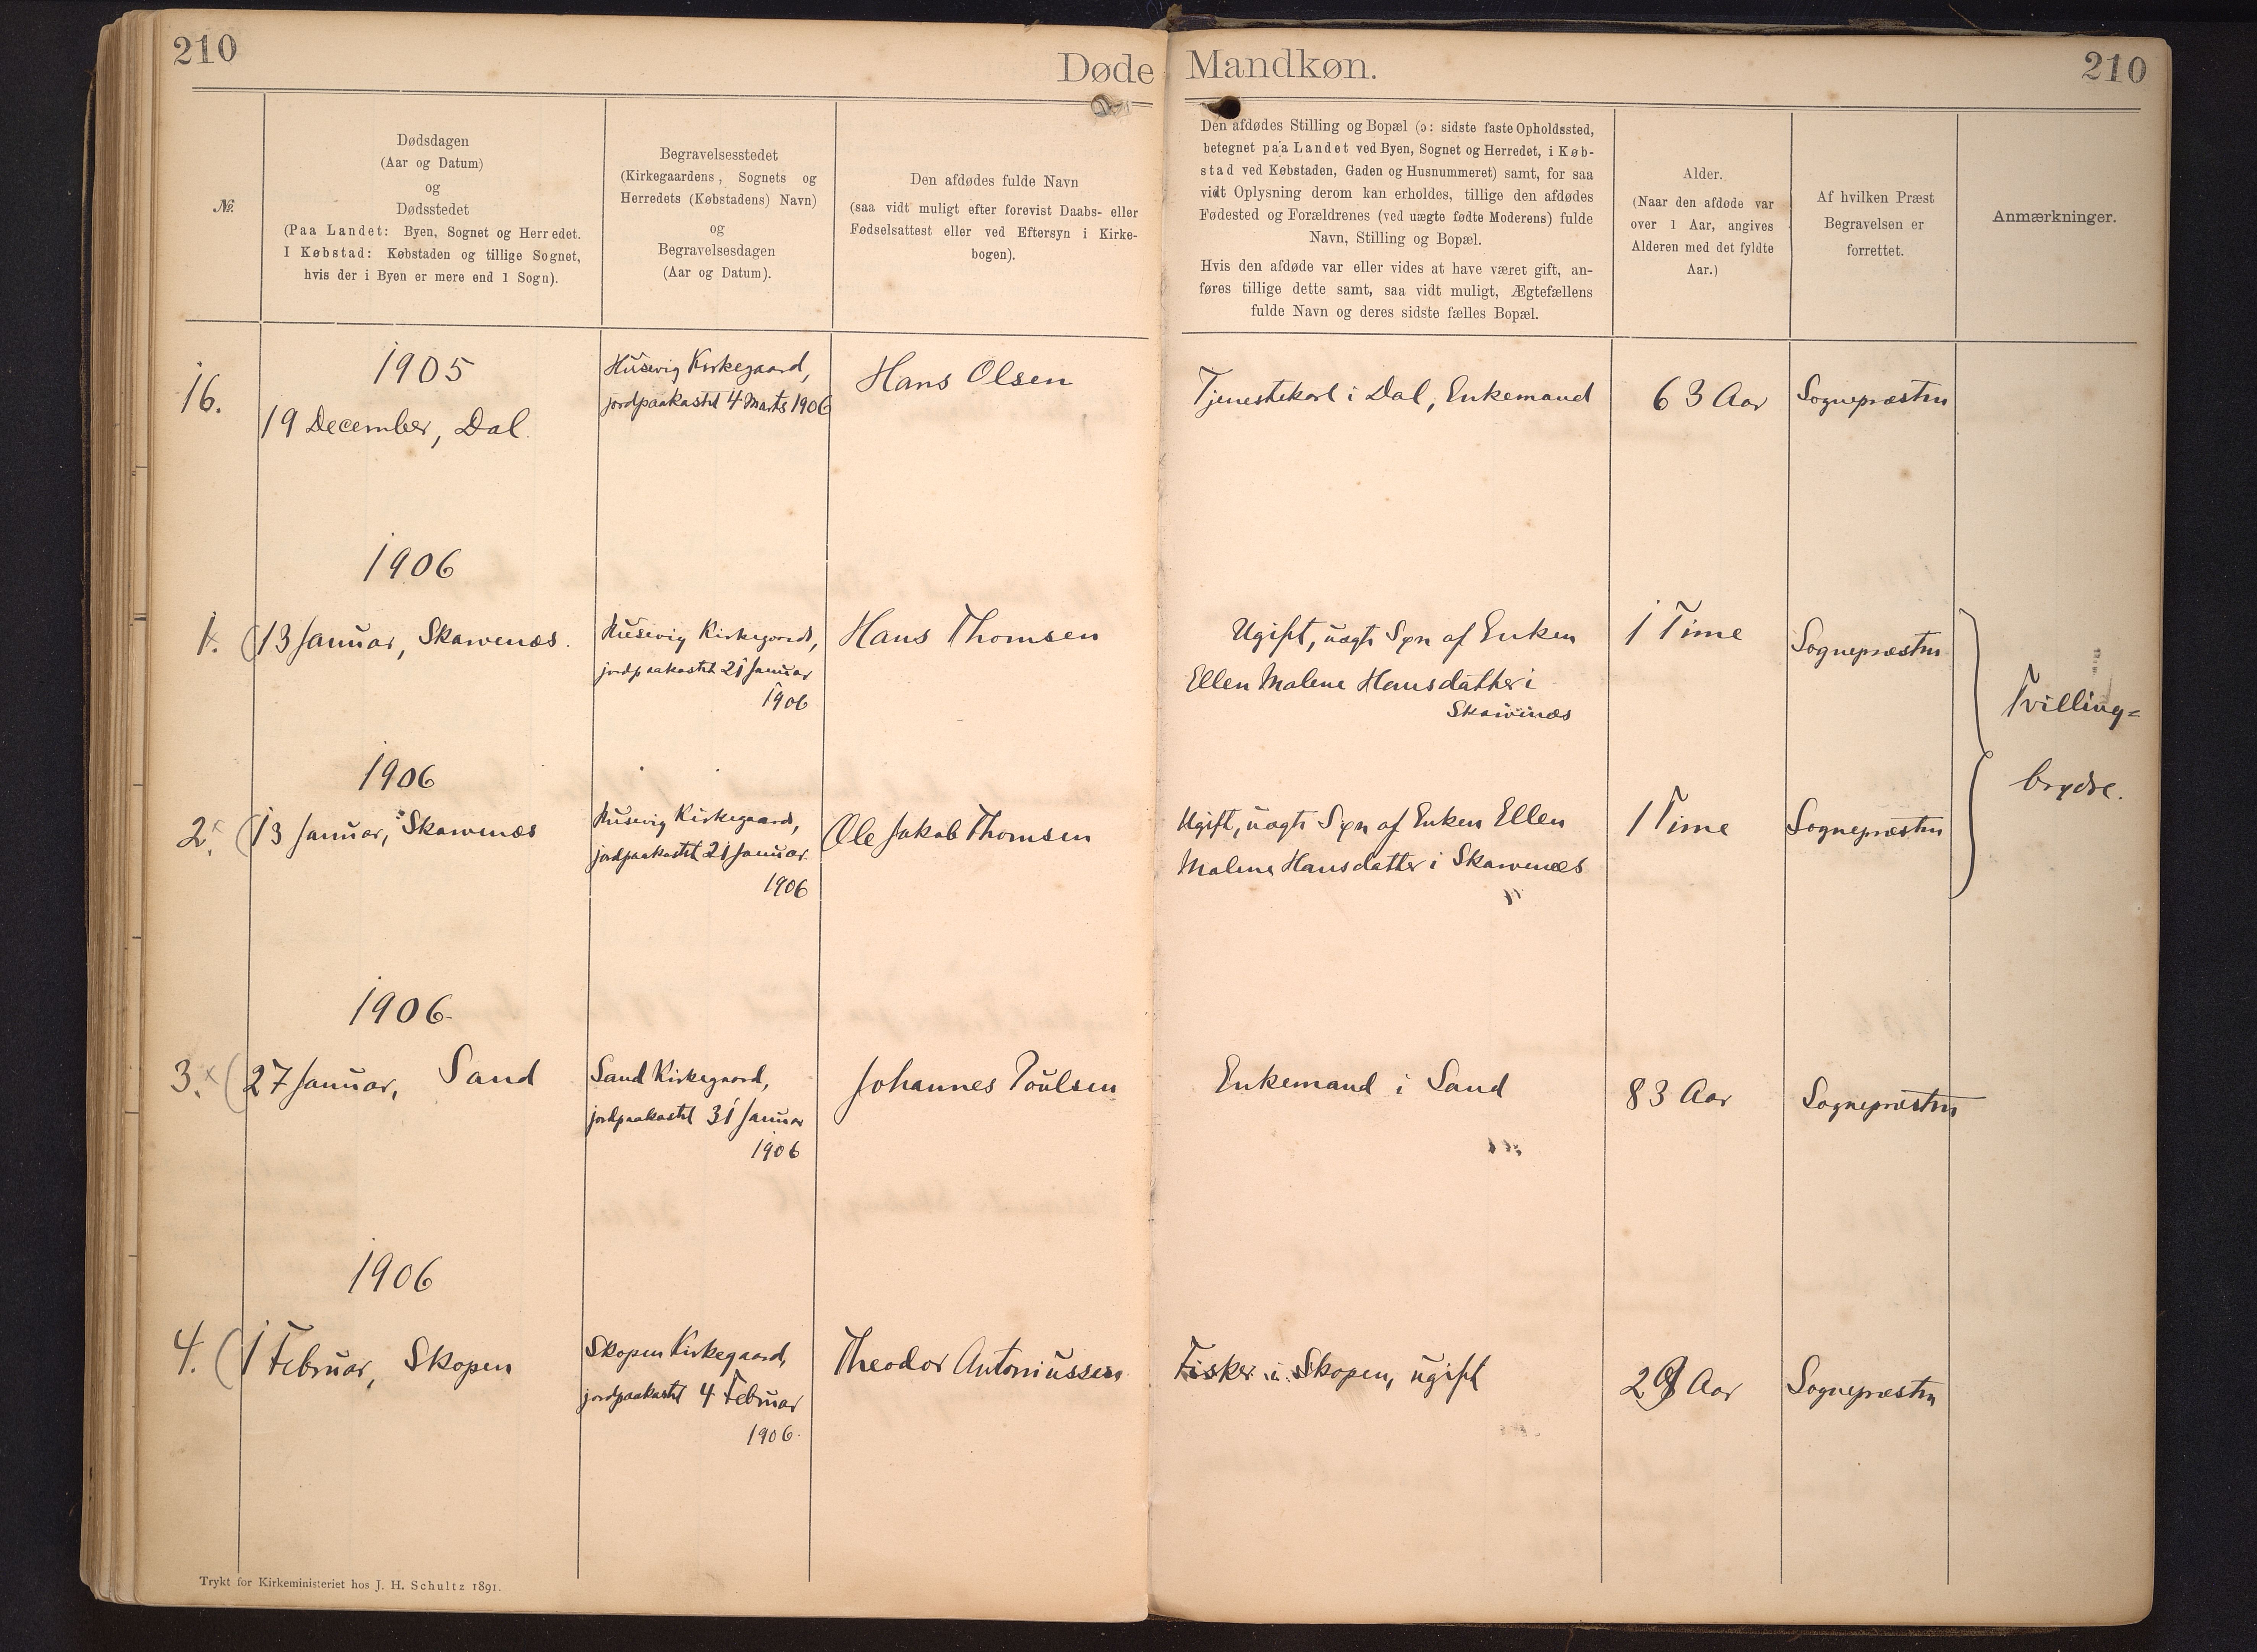 210
Døde Mandkøn.
210
№.
Dødsdagen
(Aar og Datum)
og
Dødsstedet
(Paa Landet: Byen, Sognet og Herredet.
I Købstad: Købstaden og tillige Sognet,
hvis der i Byen er mere end 1 Sogn).
Begravelsesstedet
(Kirkegaardens, Sognets og
Herredets (Købstadens) Navn)
og
Begravelsesdagen
(Aar og Datum).
Den afdødes fulde Navn
(saa vidt muligt efter forevist Daabs- eller
Fødselsattest eller ved Eftersyn i Kirke-
bogen).
Den afdødes Stilling og Bopæl (ɔ: sidste faste Opholdssted,
betegnet paa Landet ved Byen, Sognet og Herredet, i Køb-
stad ved Købstaden, Gaden og Husnummeret) samt, for saa
vidt Oplysning derom kan erholdes, tillige den afdødes
Fødested og Forældrenes (ved uægte fødte Moderens) fulde
Navn, Stilling og Bopæl.
Hvis den afdøde var eller vides at have været gift, an-
føres tillige dette samt, saa vidt muligt, Ægtefællens
fulde Navn og deres sidste fælles Bopæl.
Alder.
(Naar den afdøde var
over 1 Aar, angives
Alderen med det fyldte
Aar.)
Af hvilken Præst
Begravelsen er
forrettet.
Anmærkninger.
16.
1905
19 December, Dal.
Husevig Kirkegaard,
jordpaakastet 4 Marts 1906
Hans Olsen
Tjenestekarl i Dal, Enkemand
63 Aar
Sognepræsten
1906
1.
13 Januar, Skarvenæs.
Husevig Kirkegaard,
jordpaakastet 21 Januar
1906
Hans Thomsen
Ugift, uægte Søn af Enken
Ellen Malene Hansdatter i
Skarvenæs
1 Time
Sognepræsten
Tvilling=
brødre.
1906
2.
13 Januar, Skarvenæs
Husevig Kirkegaard,
jordpaakastet 21 Januar.
1906
Ole Jakob Thomsen
Ugift, uægte Søn af Enken Ellen
Malene Hansdatter i Skarvenæs
1 Time
Sognepræsten
1906.
3.
27 Januar, Sand
Sand Kirkegaard,
jordpaakastet 31 Januar
1906
Johannes Poulsen
Enkemand i Sand
83 Aar
Sognepræsten
1906
4.
1 Februar, Skopen
Skopen Kirkegaard,
jordpaakastet 4 Februar
1906.
Theodor Antoniussen
Fisker i Skopen, ugift
Aar
Sognepræsten
Trykt for Kirkeministeriet hos J. H. Schultz 1891.